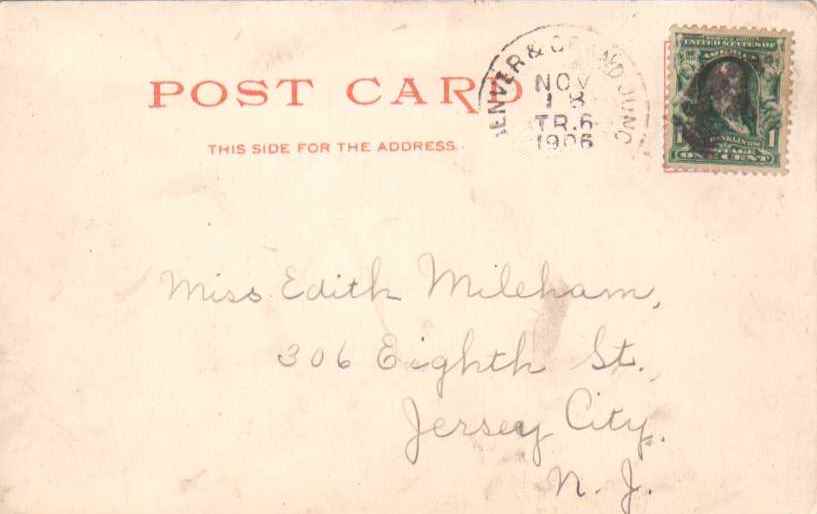 POST CARD
THIS SIDE FOR THE ADDRESS.
DENVER & GRAND JUNC
NOV
18
TR.6
1906
UNITED STATES OF
AMERICA
FRANKLIN
1 POSTAGE 1
ONE CENT
Miss Edith Mileham,
306 Eighth St.,
Jersey City.
N. J.